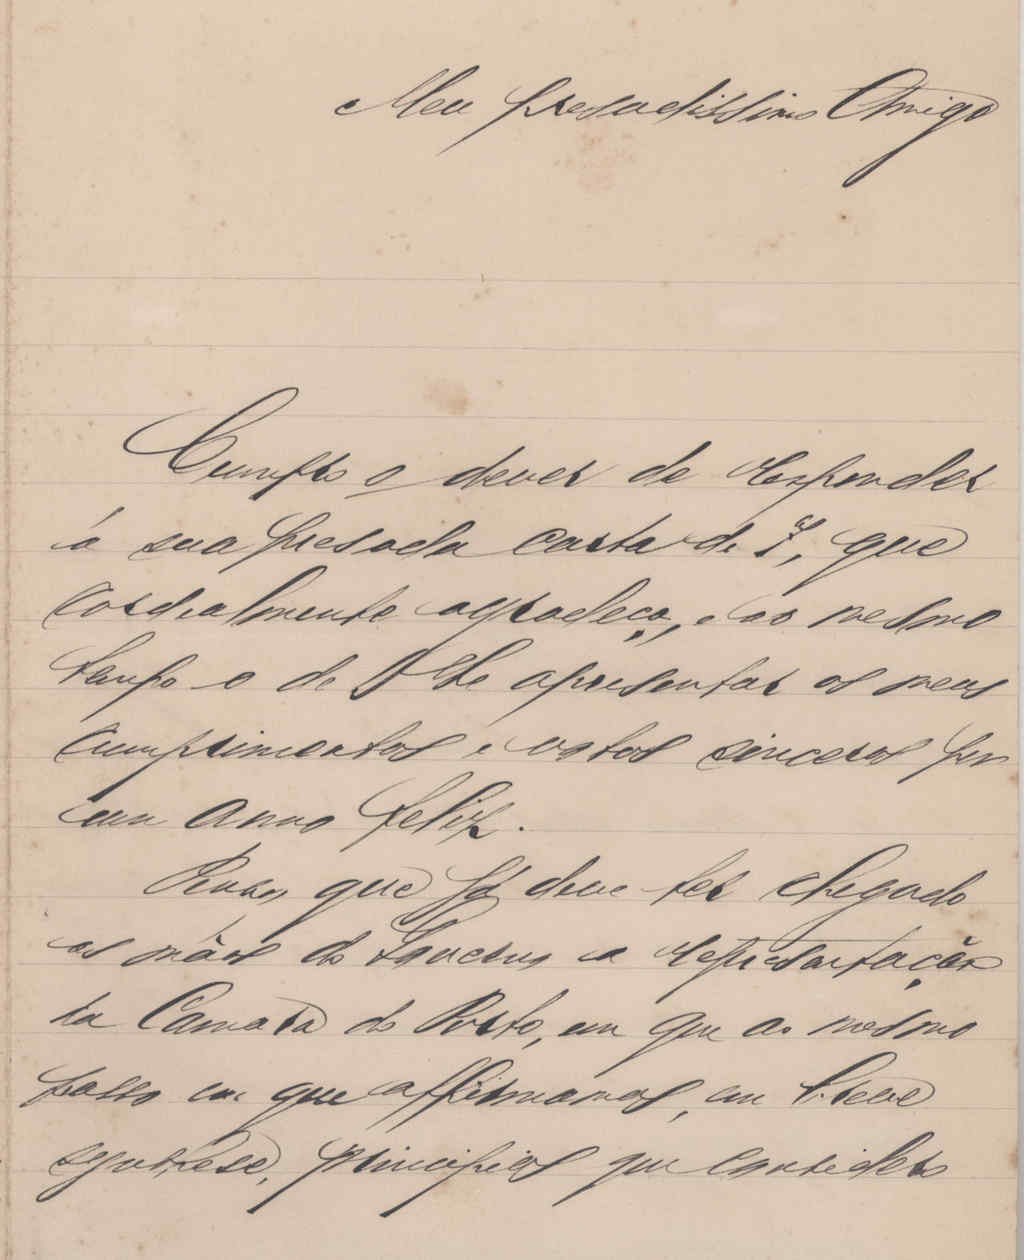 Meu presadissimo Amigo
Cumpro o dever de responder
á sua presada carta de 7, que
cordialmente agradeço, e ao mesmo
tempo o de lhe apresentar os meus
cumprimentos e votos sinceros por
um anno feliz.
Penso que já deve ter chegado
ás mãos do Governo a representação
da Camara do Porto, em que ao mesmo
passo em que affirmamos, em breve
synthese, principios que considero